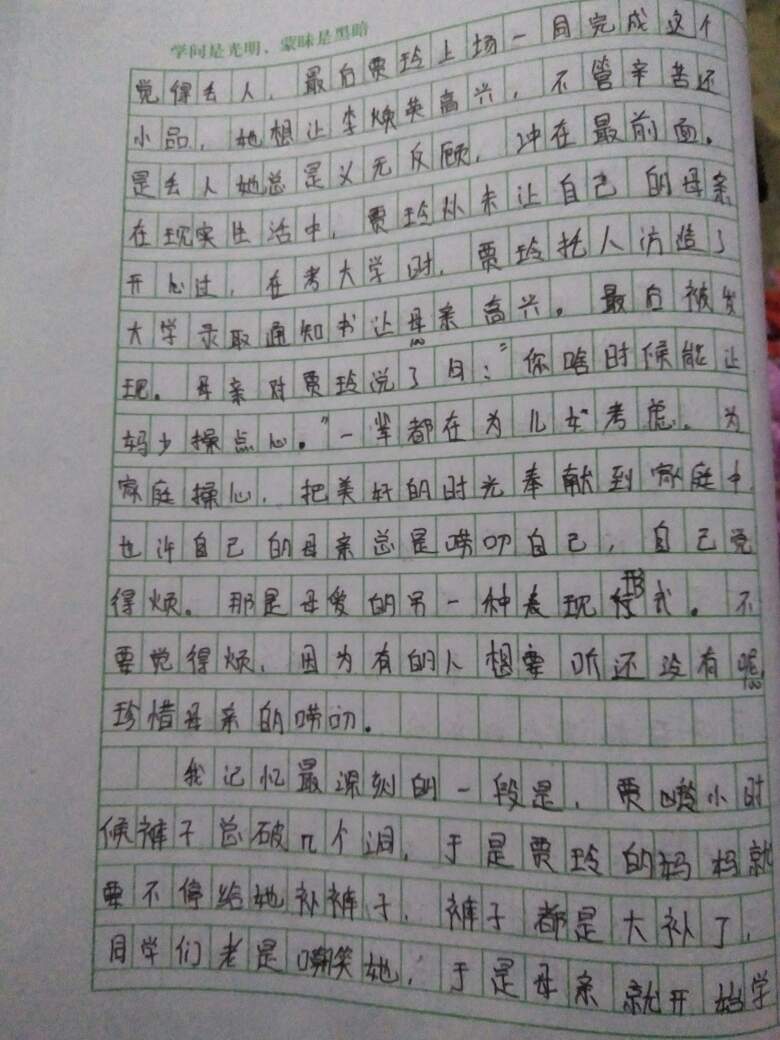 学问是光明，蒙昧是黑暗
觉得丢人，最后贾玲上场一同完成这个
小品，她想让李焕英高兴，不管辛苦还
是丢人她总是义无反顾，冲在最前面。
在现实生活中，贾玲从未让自己的母亲
开心过，在考大学时，贾玲托人仿造了
大学录取通知书让母亲高兴。最后被发
现。母亲对贾玲说了句："你啥时候能让
妈少操点心。"一辈都在为儿女考虑。为
家庭操心，把美好的时光奉献到家庭中
也许自己的母亲总是唠叨自己，自己觉
得烦。那是母爱的另一种表现形式。不
要觉得烦，因为有的人想要听还没有呢
珍惜母亲的唠叨。
我记忆最深刻的一段是，贾晓小时
候裤子总破几个洞，于是贾玲的妈妈就
要不停给她补裤子，裤子都是大补了，
同学们老是嘲笑她，于是母亲就开始学